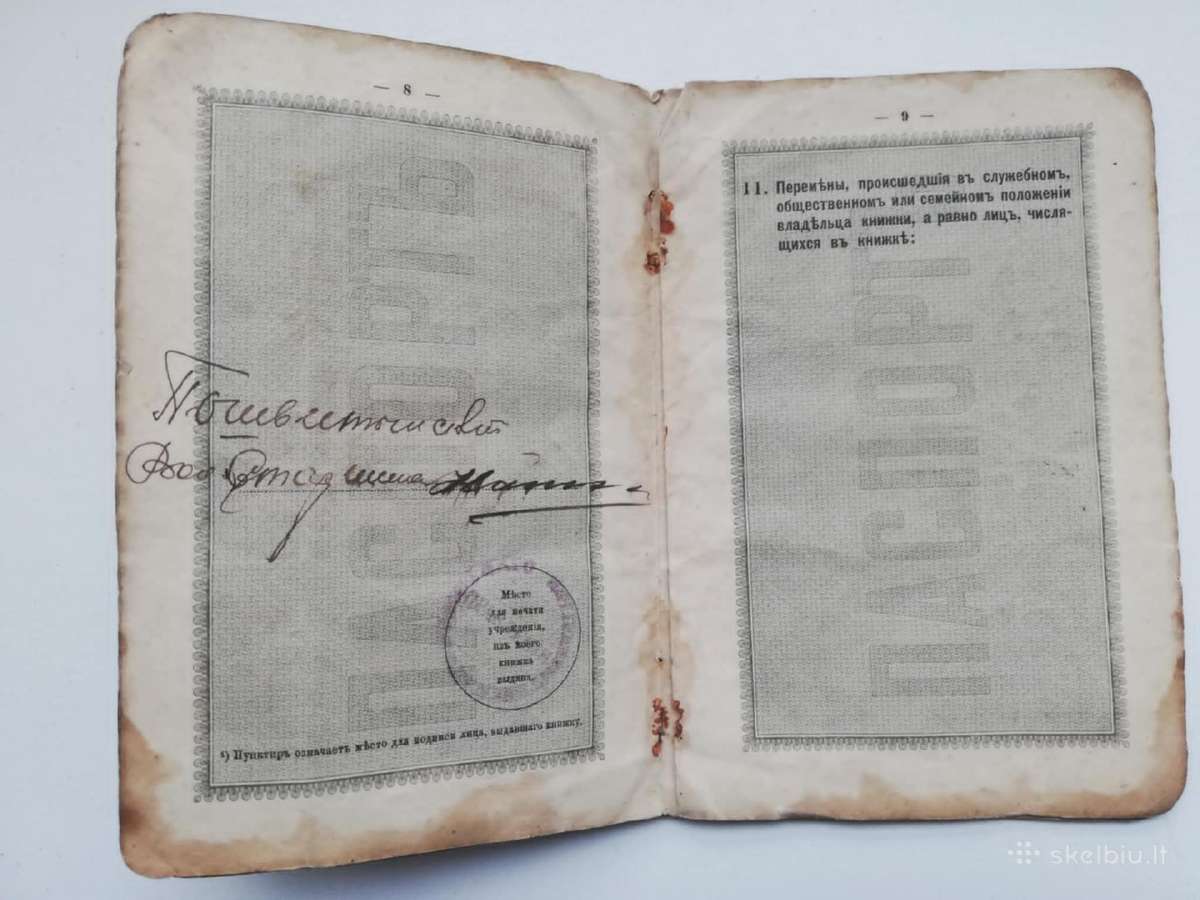 — 8 —
ПАСПОРТЪ
Мѣсто
для печати
учрежденія,
изъ коего
книжка
выдана.
¹) Пунктиръ означаетъ мѣсто для подписи лица, выдавшаго книжку.
— 9 —
11. Перемѣны, происшедшія въ служебномъ,
общественномъ или семейномъ положеніи
владѣльца книжки, а равно лицъ, числя-
щихся въ книжкѣ:
ПАСПОРТ
skelbiu.lt